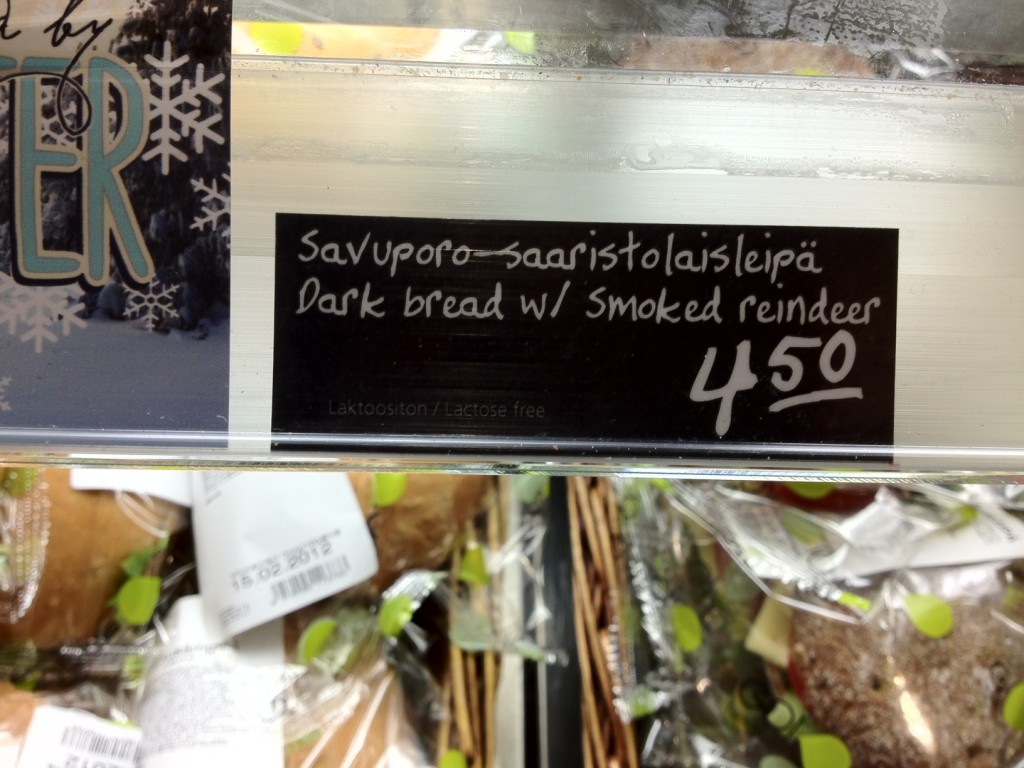 d by
ER
Savuporo-saaristolaisleipä
Dark bread w/ smoked reindeer
4 50
Laktoositon / Lactose free
15.02.2012
2012